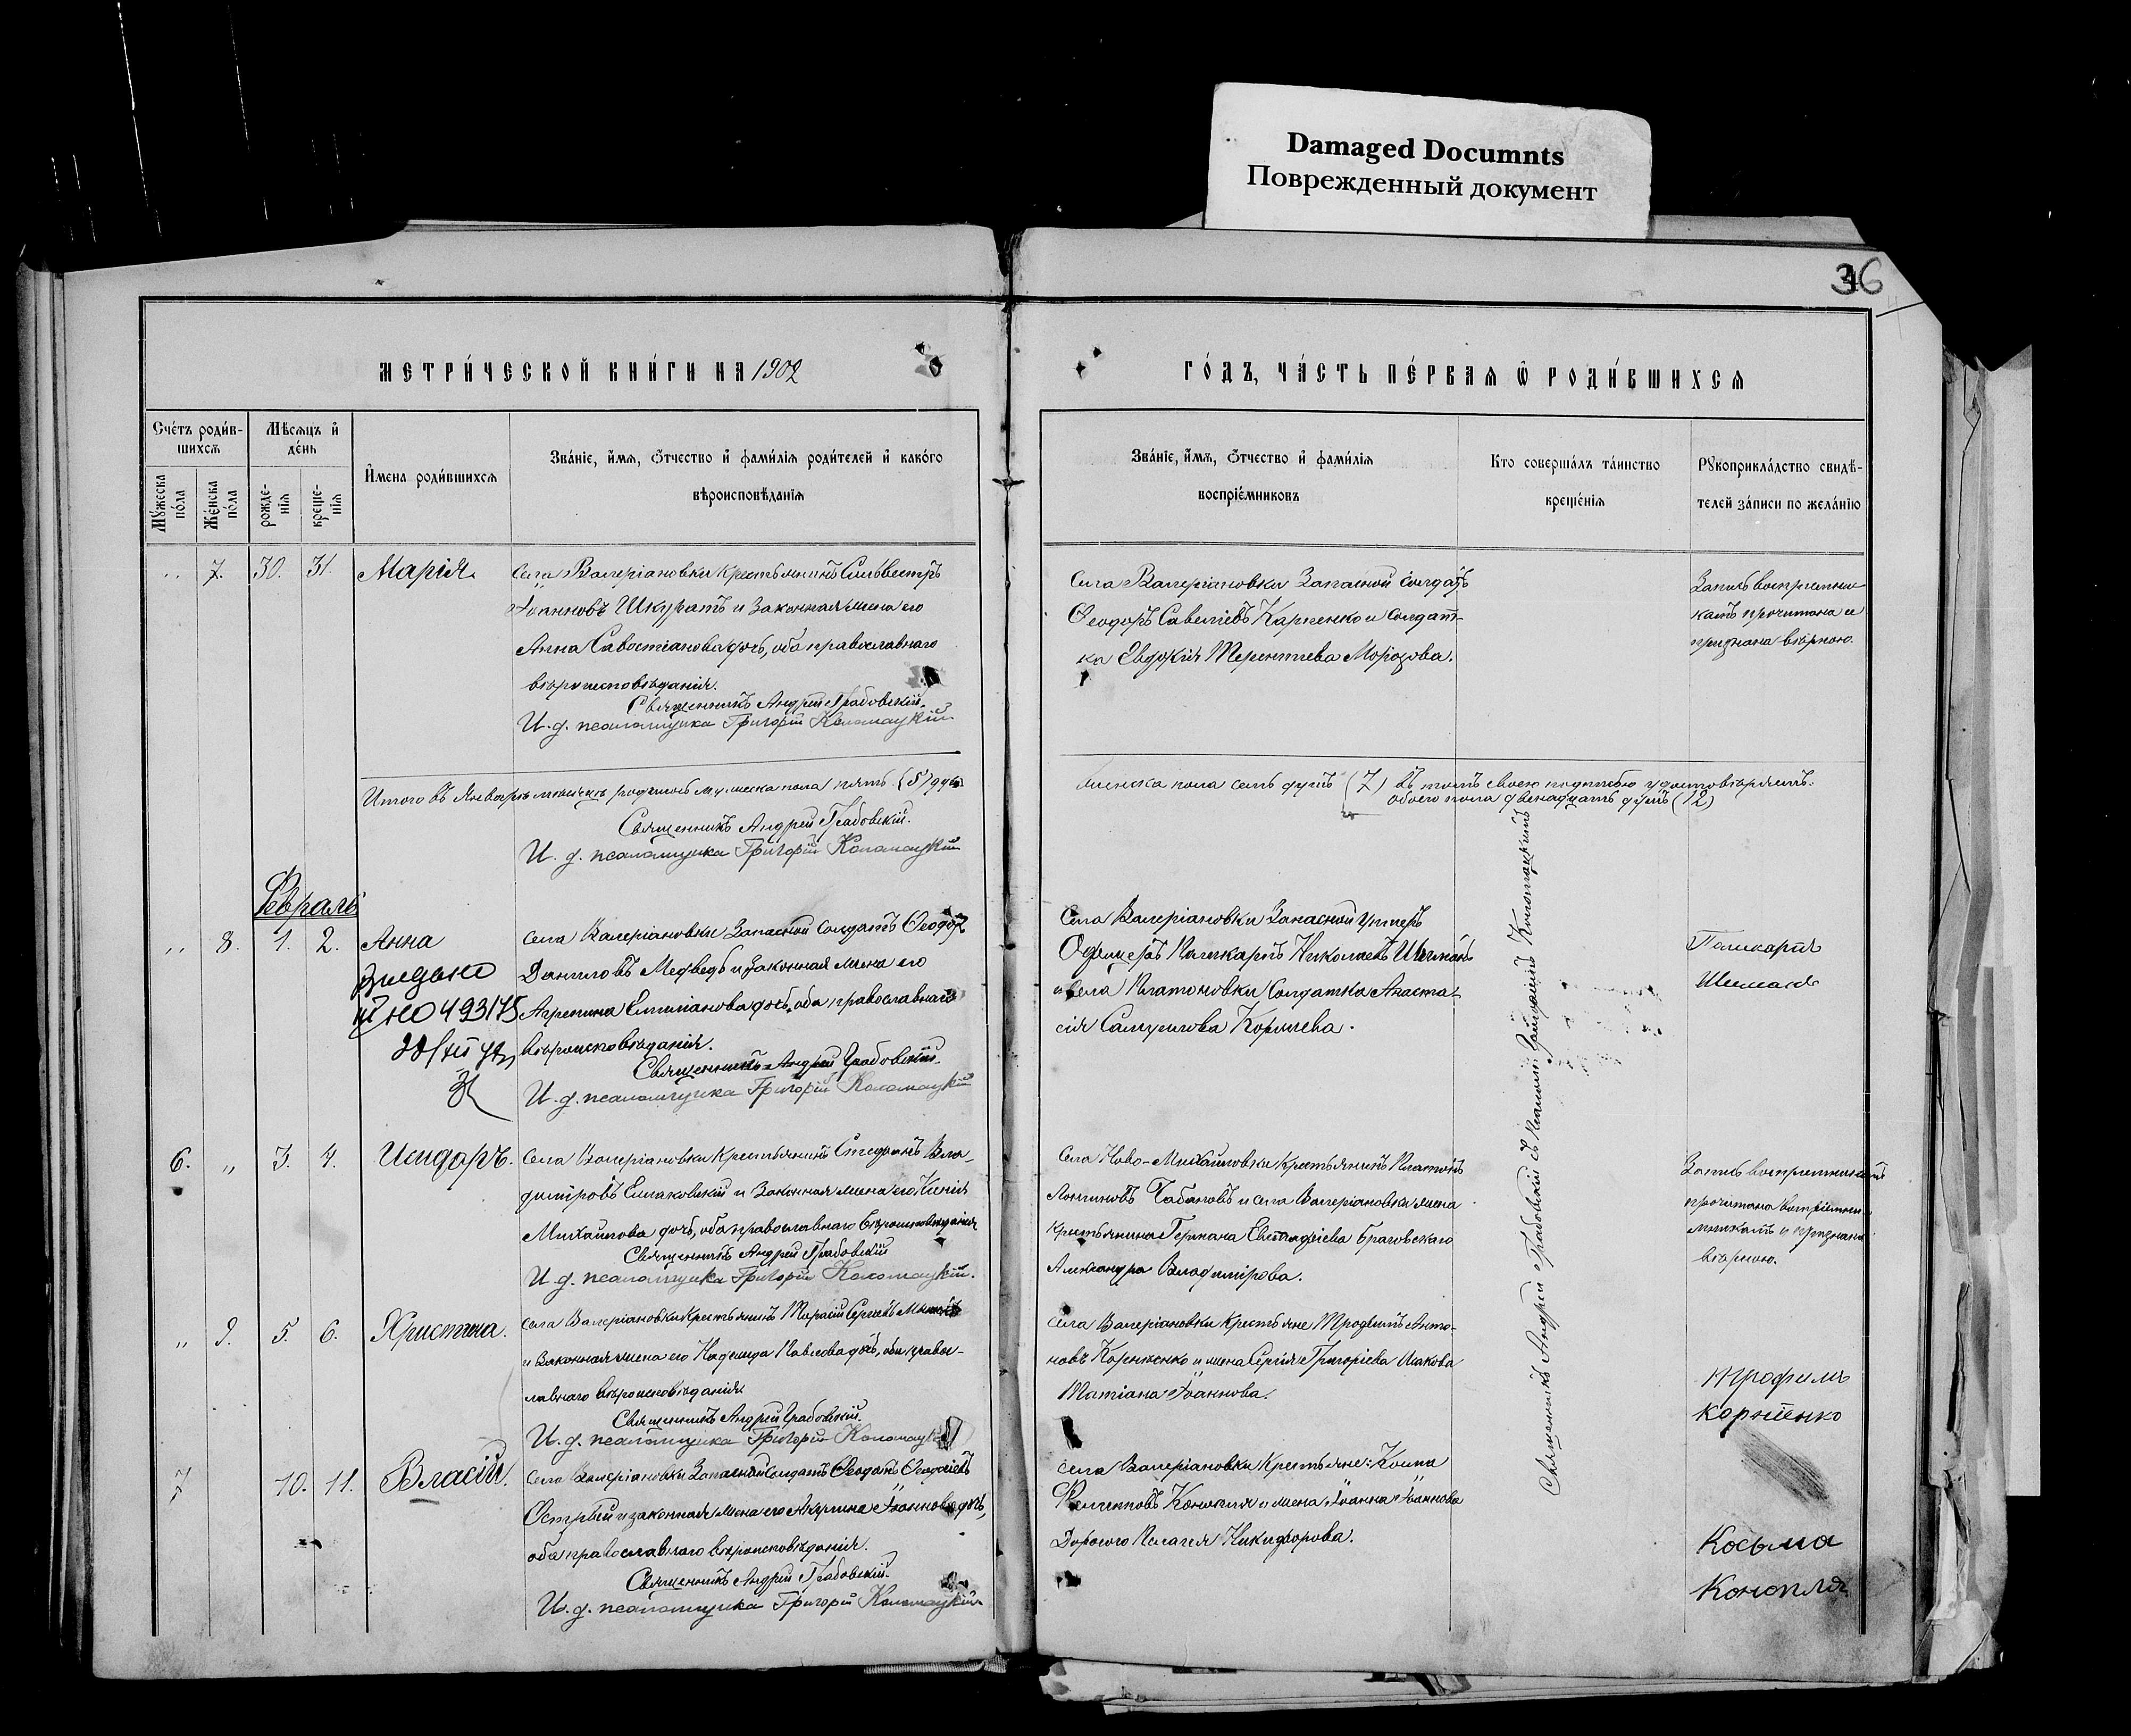 Damaged Documnts
Поврежденный документ
36
МЕТРИ́ЧЕСКОЙ КНИ́ГИ НА 1902
ГО́ДЪ, ЧА́СТЬ ПЕ́РВАЯ Ѿ РОДИ́ВШИХСЯ
Сче́тъ роди́в-
шихсѧ
Мѣсѧцъ и҆
де́нь
Мꙋ́жеска
по́ла
Же́нска
по́ла
рожде-
нїѧ
креще-
нїѧ
И҆мена роди́вшихсѧ
Зва́нїе, и҆́мѧ, ѻ҆́тчество и҆ фами́лїѧ роди́телей и҆ како́го
вѣроисповѣ́данїѧ
Зва́нїе, и҆́мѧ, ѻ҆́тчество и҆ фами́лїѧ
воспрїе́мниковъ
Кто соверша́лъ та́инство
креще́нїѧ
Рꙋкоприкла́дство свидѣ́-
телей за́писи по жела́нїю
„ 7. 30. 31. Марія.
Села Валеріановки крестьянинъ Сильвестръ
Іоанновъ Шкуратъ и законная жена его
Анна Савостіанова дочь, оба православнаго
вѣроисповѣданія.
Священникъ Андрей Грабовскій.
И. д. псаломщика Григорій Коломацкій
Села Валеріановки Запасной солдатъ
Ѳеодоръ Савеліевъ Карпенко и солдат-
ка Евдокія Терентіева Морозова.
Запись воспріемни-
камъ прочитана и
признана вѣрною.
Итого въ Январѣ мѣсяцѣ родилось мужеска пола пять (5) душъ
женска пола семь душъ (7) въ томъ своею подписью удостовѣряемъ.
обоего пола двенадцать душъ (12)
Священникъ Андрей Грабовскій.
И. д. псаломщика Григорій Коломацкій
Февраль
„ 8. 1. 2. Анна
Села Валеріановки Запасной солдатъ Ѳеодоръ
Даниловъ Медведь и законная жена его
Агрепина Емиліанова дочь, оба православнаго
вѣроисповѣданія.
Священникъ Андрей Грабовскій.
И. д. псаломщика Григорій Коломацкій
493175
Села Валеріановки Запасной унтеръ
Офицеръ Поликарпъ Николаевъ Шиманъ
и села Платоновки солдатка Анаста-
сія Самуилова
6. „ 3. 4. Исидоръ.
Села Валеріановки крестьянинъ Стефанъ Вла-
диміровъ и законная жена его Ксенія
Михайлова дочь, оба православнаго вѣроисповѣданія
Священникъ Андрей Грабовскій
И. д. псаломщика Григорій Коломацкій.
Села Ново-Михайловки крестьянинъ Платонъ
Логиновъ Чабановъ и села Валеріановки жена
крестьянина Германа Евстафіева
Александра Владимірова.
Запись воспріемникамъ
прочитана воспріемни-
камъ и признана
вѣрною.
„ 9. 5. 6. Христина.
Села Валеріановки крестьянинъ Тарасій Сергіевъ
и законная жена его Надежда Павлова дочь, оба право-
славнаго вѣроисповѣданія.
Священникъ Андрей Грабовскій.
И. д. псаломщика Григорій Коломацкій
Села Валеріановки крестьяне Трофимъ Анто-
новъ Корніенко и жена Сергія Григоріева Исакова
Татіана Іоаннова.
Трофимъ
Корніенко
7 10. 11. Власій.
Села Валеріановки Запасной солдатъ Ѳеодотъ
Острый и законная жена его Акулина Іоаннова дочь,
оба православнаго вѣроисповѣданія.
Священникъ Андрей Грабовскій.
И. д. псаломщика Григорій Коломацкій
Села Валеріановки крестьяне: Косма
Филипповъ Конопля и жена Іоанна Іоаннова
Дорогого Пелагея Никифорова.
Косьма
Конопля
Священникъ Андрей Грабовскій съ Псаломщ. Григоріемъ Коломацкимъ